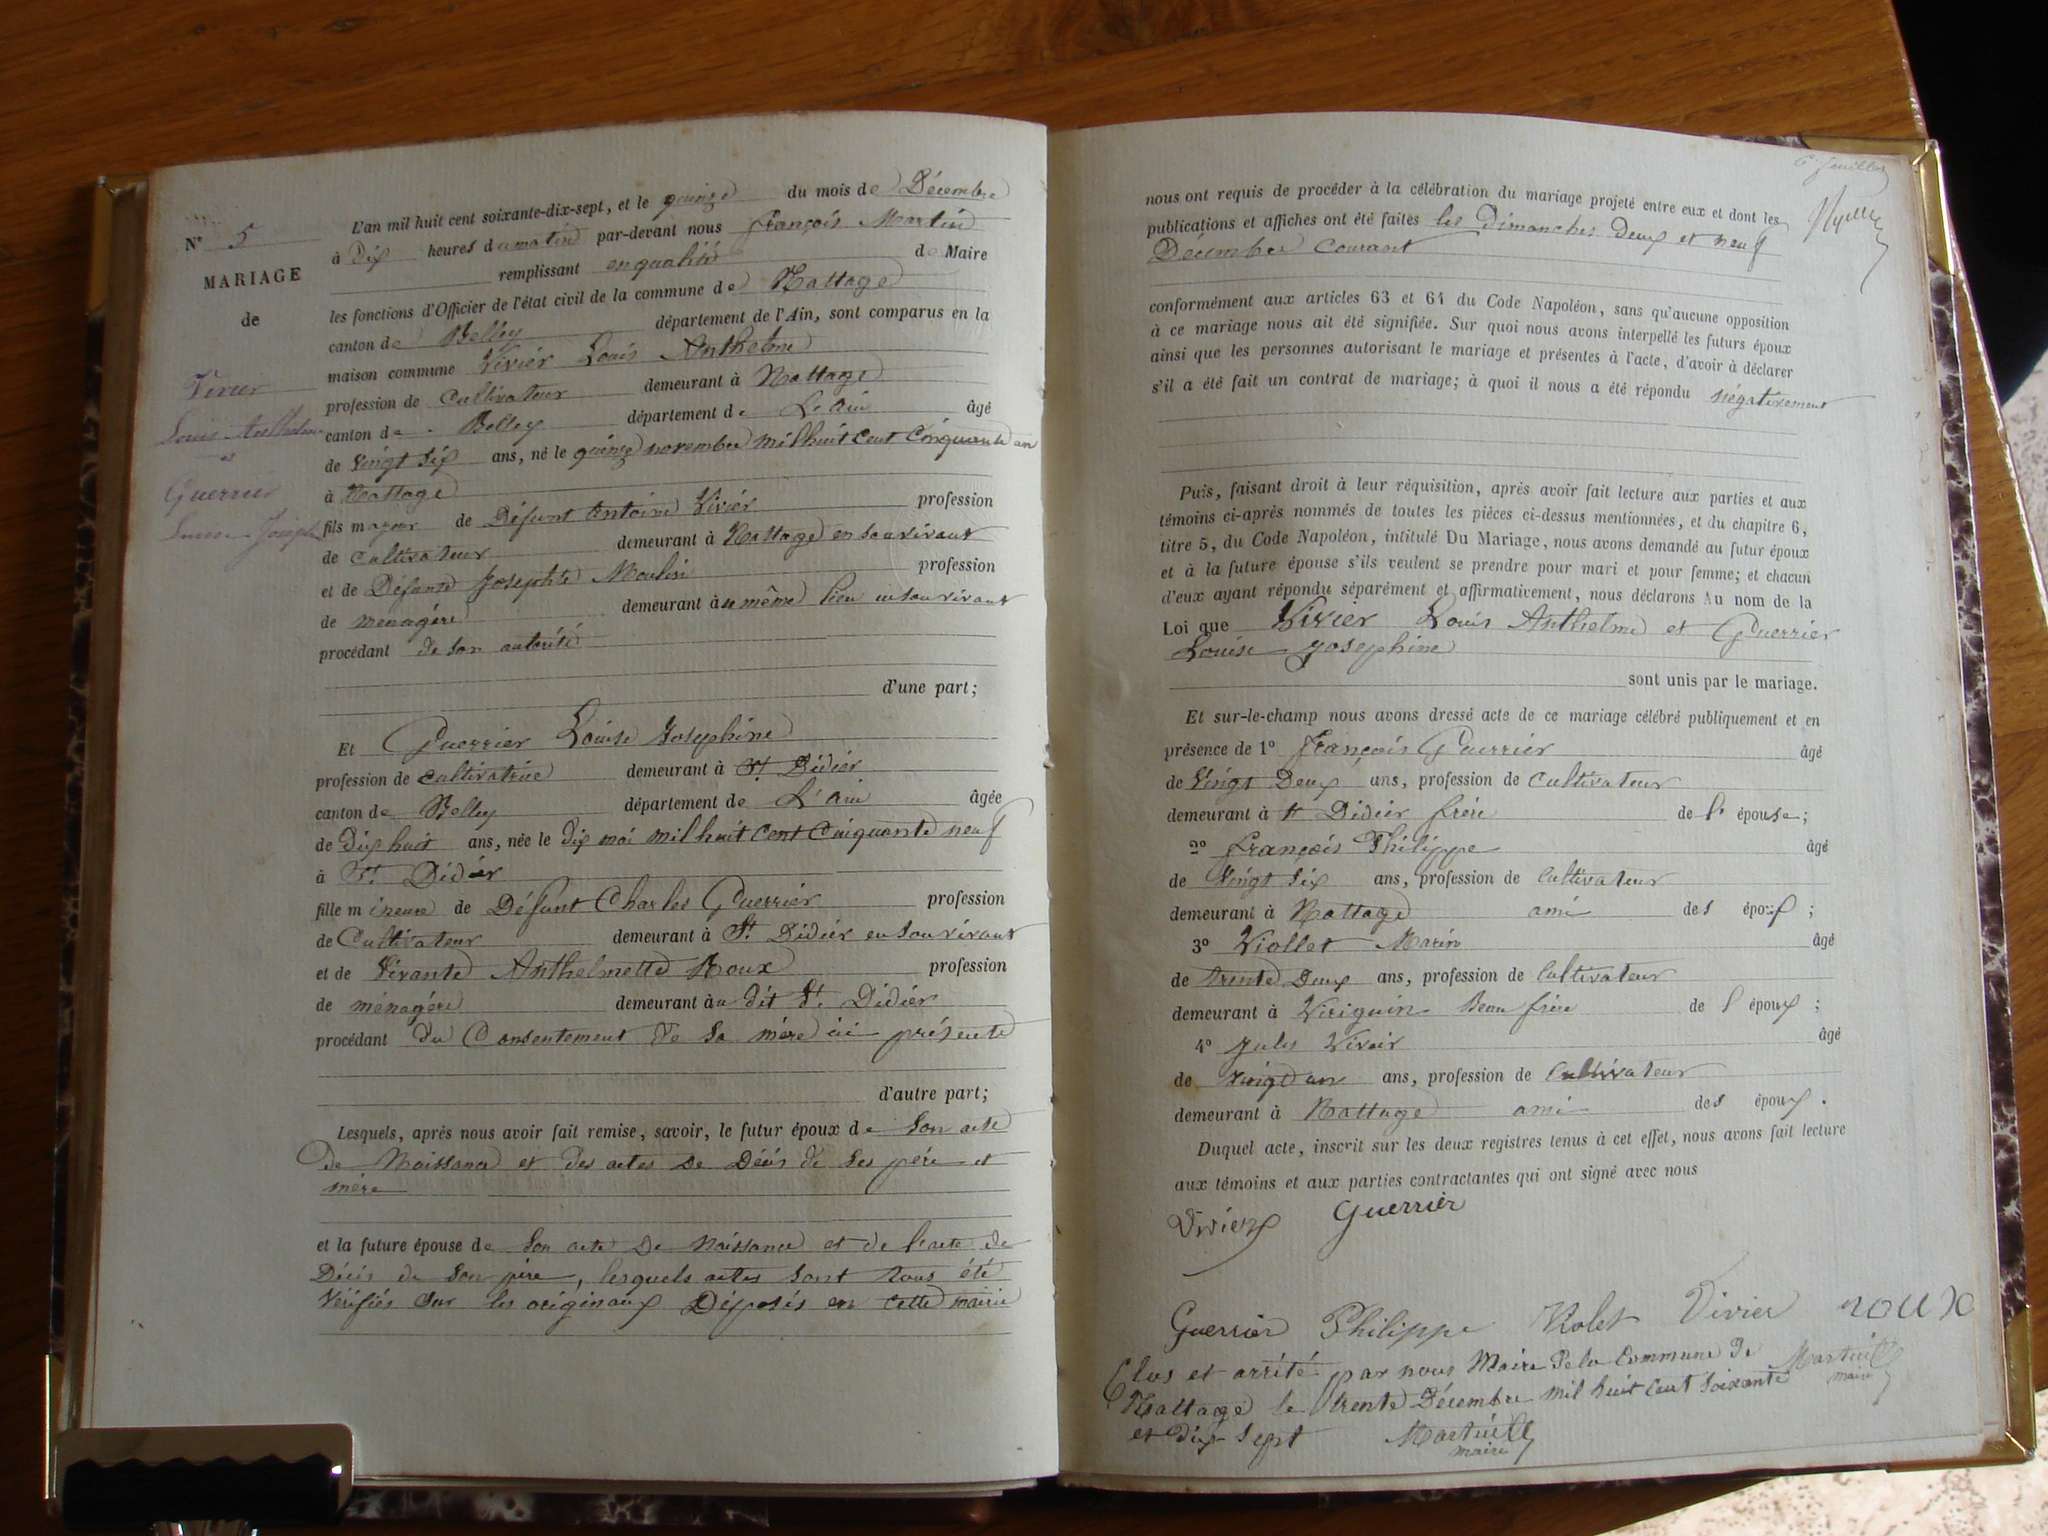 N° 5
MARIAGE
de
Vivier
Louis Anthelme
et
Guerrier
Louise Joseph
L'an mil huit cent soixante-dix-sept, et le quinze du mois de Décembre
à Dix heures du matin par-devant nous François Martin
remplissant en qualité de Maire
les fonctions d'Officier de l'état civil de la commune de Nattage
canton de Belley département de l'Ain, sont comparus en la
maison commune Vivier Louis Anthelme
profession de Cultivateur demeurant à Nattage
canton de Belley département de L'Ain âgé
de Vingt Six ans, né le quinze novembre mil huit cent Cinquante un
à Nattage
fils majeur de Défunt Antoine Vivier profession
de Cultivateur demeurant à Nattage en son vivant
et de Défunte Josephte Moulin profession
de menagère demeurant au même lieu en son vivant
procédant de son autorité
d'une part;
Et Guerrier Louise Josephine
profession de Cultivatrice demeurant à St Didier
canton de Belley département de L'Ain âgée
de Dix huit ans, née le Dix mai mil huit Cent Cinquante neuf
à St Didier
fille mineure de Défunt Charles Guerrier profession
de Cultivateur demeurant à St Didier en son vivant
et de Vivante Anthelmette Roux profession
de ménagère demeurant au dit St Didier
procédant du Consentement de Sa mère ici présente
d'autre part;
Lesquels, après nous avoir fait remise, savoir, le futur époux de Son acte
de Naissance et des actes de Décès de Ses père et
mère
et la future épouse de Son acte de Naissance et de l'acte de
Décès de Son père, lesquels actes sont tous été
Vérifiés sur les originaux Déposés en cette mairie
6e feuillet
nous ont requis de procéder à la célébration du mariage projeté entre eux et dont les
publications et affiches ont été faites les Dimanches Deux et neuf
Décembre Courant
conformément aux articles 63 et 64 du Code Napoléon, sans qu'aucune opposition
à ce mariage nous ait été signifiée. Sur quoi nous avons interpellé les futurs époux
ainsi que les personnes autorisant le mariage et présentes à l'acte, d'avoir à déclarer
s'il a été fait un contrat de mariage; à quoi il nous a été répondu négativement
Puis, faisant droit à leur réquisition, après avoir fait lecture aux parties et aux
témoins ci-après nommés de toutes les pièces ci-dessus mentionnées, et du chapitre 6,
titre 5, du Code Napoléon, intitulé Du Mariage, nous avons demandé au futur époux
et à la future épouse s'ils veulent se prendre pour mari et pour femme; et chacun
d'eux ayant répondu séparément et affirmativement, nous déclarons Au nom de la
Loi que Vivier Louis Anthelme et Guerrier
Louise Josephine
sont unis par le mariage.
Et sur-le-champ nous avons dressé acte de ce mariage célébré publiquement et en
présence de 1° François Guerrier âgé
de Vingt Deux ans, profession de Cultivateur
demeurant à St Didier frère de l'épouse;
2° François Philippe âgé
de Vingt Six ans, profession de Cultivateur
demeurant à Nattage ami des époux;
3° Viollet Marin âgé
de trente Deux ans, profession de Cultivateur
demeurant à Virignin Beau frère de l'époux;
4° Jules Vivier âgé
de Vingt un ans, profession de Cultivateur
demeurant à Nattage ami des époux.
Duquel acte, inscrit sur les deux registres tenus à cet effet, nous avons fait lecture
aux témoins et aux parties contractantes qui ont signé avec nous
Vivier Guerrier
Guerrier Philippe Violet Vivier roux
Clos et arrêté par nous Maire De la Commune de
Nattage le trente Décembre mil huit cent soixante
et dix-sept
maire
maire